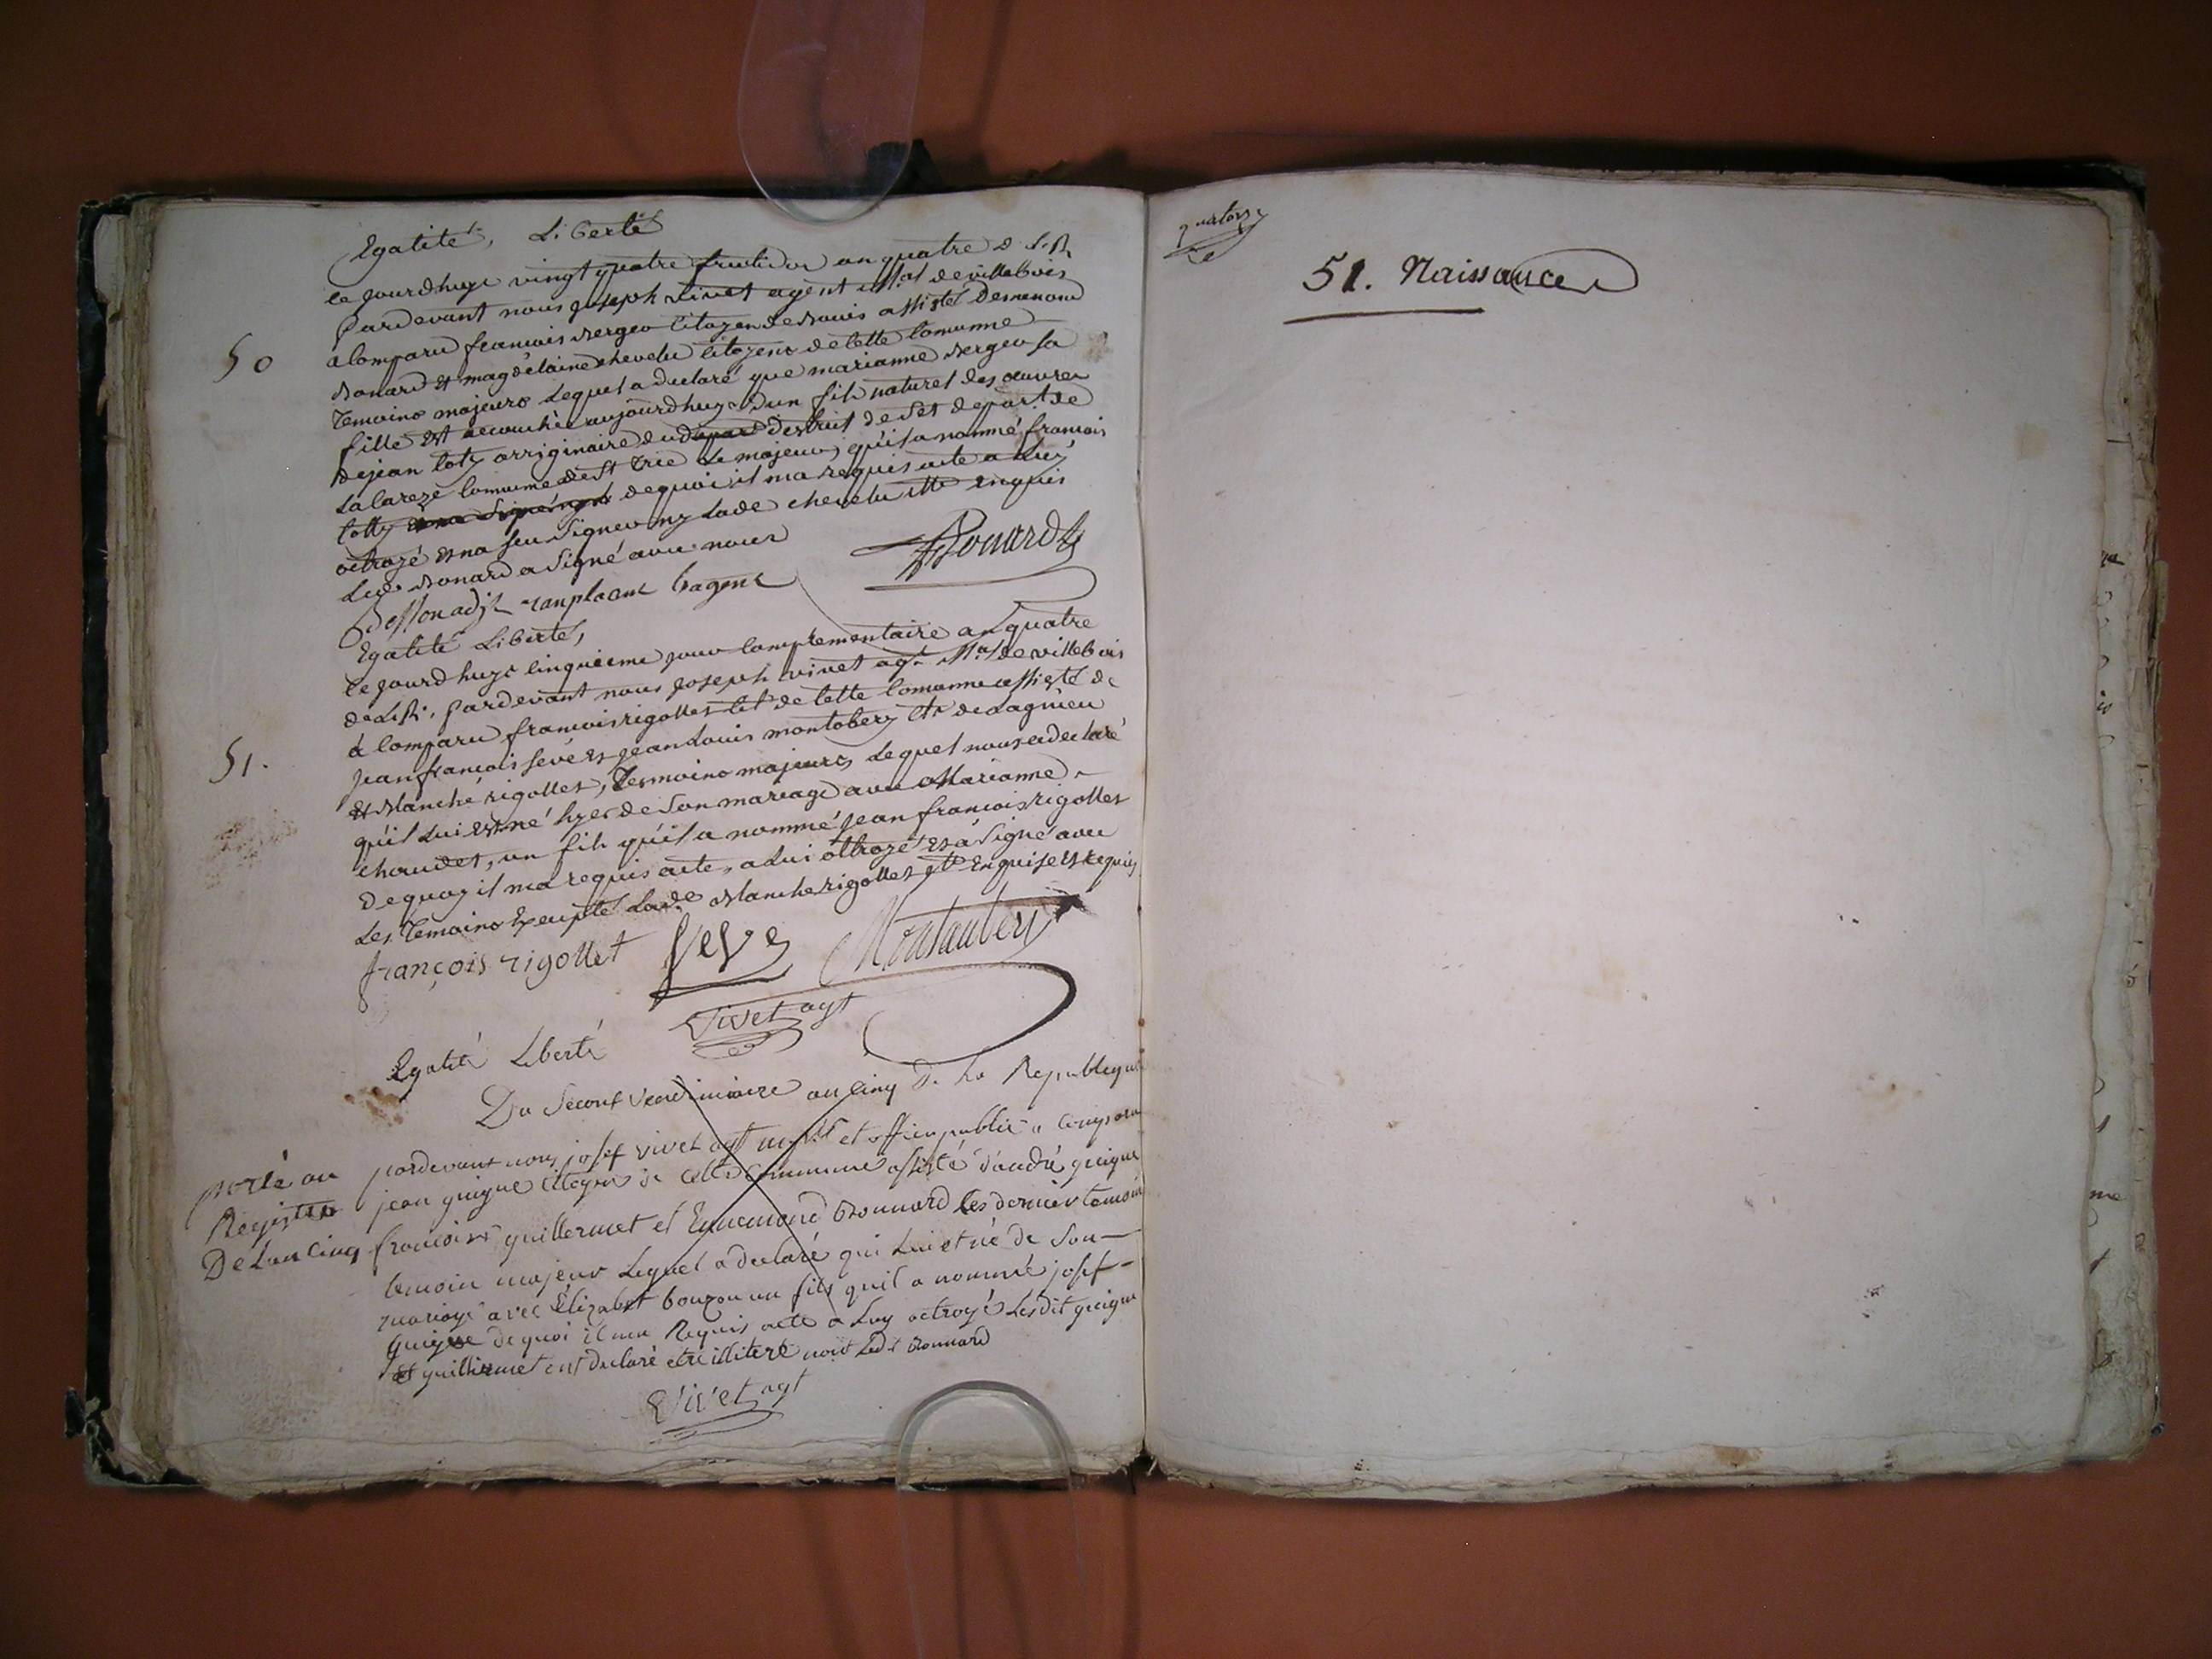 Egalité, Liberté
ce jourdhuyc vingt quatre fructidor an quatre d. l. R.
pardevant nous joseph vivet agent M.al de villebois
50
a comparu francois berger citoyen de assisté
bonard et magdelaine chevelu citoyens de cette comunne
Temoins majeurs Lequel a declaré que marianne berger sa
fille est acouchée aujourdhuyc d'un fils naturel des oeuvres
de jean originaire du de
comunne de St majeur, qu'il a nommé francois
de quoi il ma requis acte a Luy
octroyé et na seu signer ny lade chevelu enquis
Led. bonard a Signé avec nous
Bonard
l'agent
Egalité Liberté,
ce jourd huyc cinquieme jour complementaire an quatre
de L. R. pardevant nous joseph vivet agt M.al de villebois
à comparu francois rigollet cit de cette comunne assisté de
51.
jean francois sève et jean Louis montobery cit. de Lagnieu
et blanche rigollet, Temoins majeurs, Lequel nous a declaré
qu'il Lui est né hyer de son mariage avec Marianne
chaudet, un fils qu'il a nommé jean francois rigollet
de quoy il ma requis acte, a Lui ottroyé et a signé avec
Les Temoins Excepté Lade blanche rigollet Enquise et requise
françois rigollet Seve Montaubery
Vivet agt
Egalité Liberté
Du Second vendemiaire an cinq de La Republique
pardevant nous josef vivet agt et officier public a comparu
porté au
jean guigue citoyen de cette commune assisté d'andré guigue
Registre
francois guillermet et Ennemond bonnard Les dernier temoin
De L'an cinq
temoin majeur Lequel a declaré qui Lui et né de Son
mariage avec Élizabet bouzon un fils quil a nommé josef
guigue de quoi il ma Requis acte a Luy octroyé Lesdit guigue
et guillermet ont declaré etre illiteré non Led.t bonnard
Vivet agt
quatorze
51. Naissances